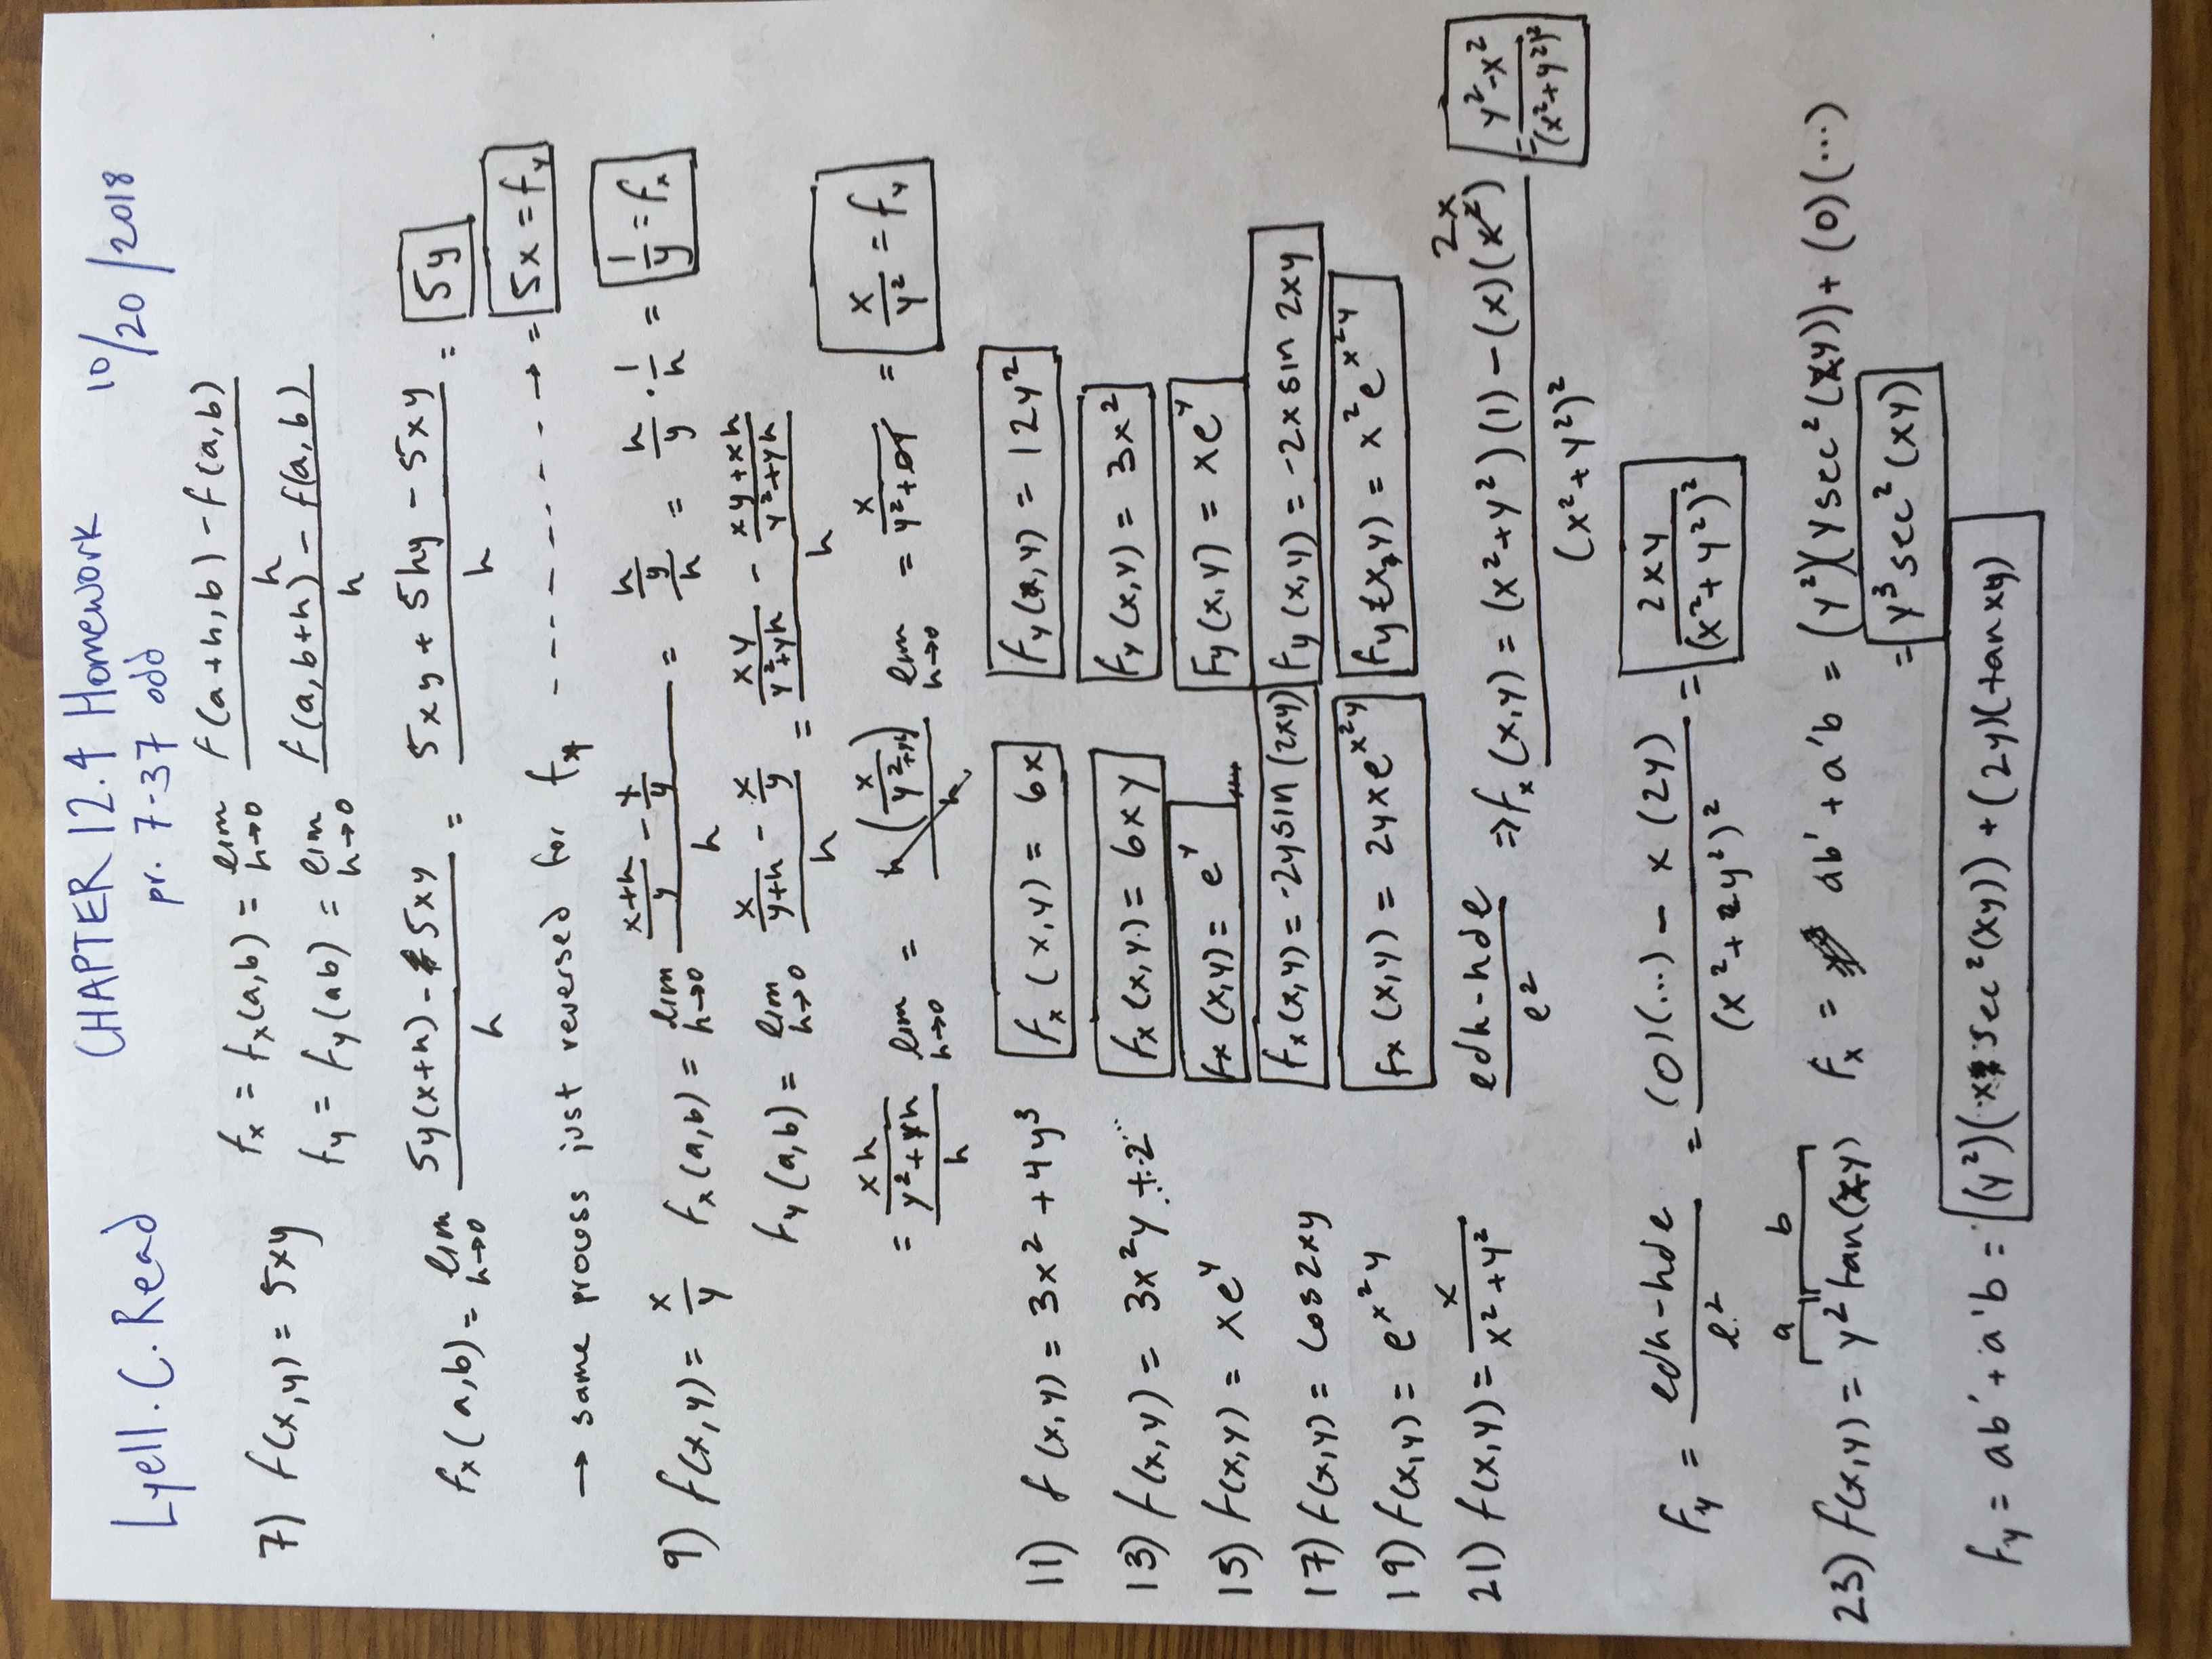 Lyell. C. Read CHAPTER 12.4 Homework 10/20/2018
pr. 7-37 odd
7) f(x,y) = 5xy
fx = fx(a,b) = lim h→0 (f(a+h,b) - f(a,b))/h
fy = fy(ab) = lim h→0 (f(a,b+h) - f(a,b))/h
fx(a,b) = lim h→0 (5y(x+h) - 5xy)/h = (5xy + 5hy - 5xy)/h = 5y
→ same process just reversed for fy ---------→ = 5x = fy
9) f(x,y) = x/y fx(a,b) = lim h→0 ((x+h)/y - x/y)/h = (h/y)/h = h/y · 1/h = 1/y = fx
fy(a,b) = lim h→0 (x/(y+h) - x/y)/h = (xy/(y²+yh) - (xy+xh)/(y²+yh))/h
= (xh/(y²+yh))/h lim h→0 = h(x/(y²+yh))/h lim h→0 = x/(y²+0y) = x/y² = fy
11) f(x,y) = 3x² + 4y³ fx(x,y) = 6x fy(x,y) = 12y²
13) f(x,y) = 3x²y + 2 fx(x,y) = 6xy fy(x,y) = 3x²
15) f(x,y) = xe^y fx(x,y) = e^y Fy(x,y) = xe^y
17) f(x,y) = cos2xy fx(x,y) = -2ysin(2xy) fy(x,y) = -2x sin 2xy
19) f(x,y) = e^(x²y) fx(x,y) = 2yxe^(x²y) fy(x,y) = x²e^(x²y)
21) f(x,y) = x/(x²+y²) (edh-hde)/e² ⇒ fx(x,y) = ((x²+y²)(1) - (x)(2x))/(x²+y²)² = (y²-x²)/(x²+y²)²
Fy = (edh-hde)/e² = ((0)(...) - x(2y))/(x²+y²)² = 2xy/(x²+y²)²
a b
23) f(x,y) = y² tan(xy) fx = ab' + a'b = (y²)(ysec²(xy)) + (0)(...)
= y³sec²(xy)
fy = ab' + a'b = (y²)(x sec²(xy)) + (2y)(tan xy)